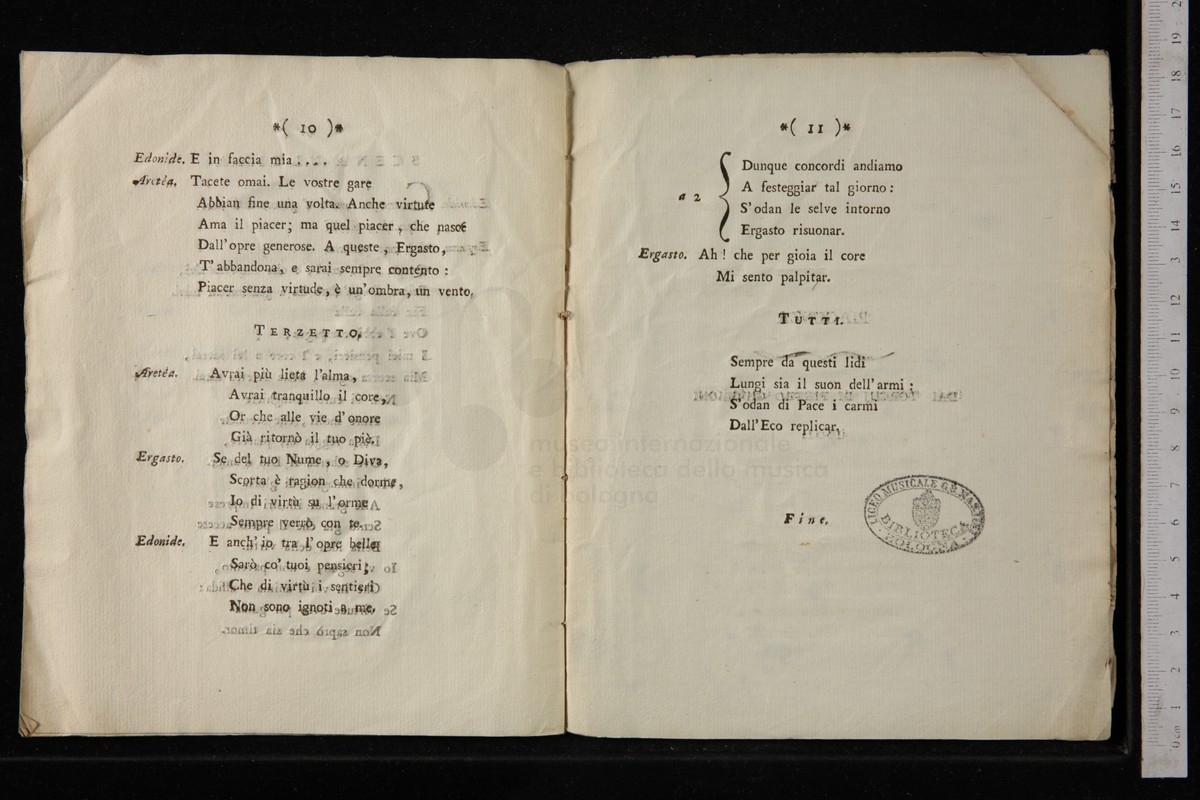 *( 10 )*
Edonide. E in faccia mia . . . .
Aretéa. Tacete omai. Le vostre gare
Abbian fine una volta. Anche virtute
Ama il piacer; ma quel piacer, che nasce
Dall' opre generose. A queste, Ergasto,
T' abbandona, e sarai sempre contento :
Piacer senza virtude, è un' ombra, un vento.
TERZETTO.
Aretéa. Avrai più lieta l'alma,
Avrai tranquillo il core,
Or che alle vie d' onore
Già ritornò il tuo piè.
Ergasto. Se del tuo Nume, o Diva,
Scorta è ragion che dorme,
Io di virtù su l' orme
Sempre verrò con te.
Edonide. E anch' io tra l' opre belle
Sarò co' tuoi pensieri;
Che di virtù i sentieri
Non sono ignoti a me.
*( 11 )*
a 2
Dunque concordi andiamo
A festeggiar tal giorno :
S' odan le selve intorno
Ergasto risuonar.
Ergasto. Ah ! che per gioia il core
Mi sento palpitar.
TUTTI.
Sempre da questi lidi
Lungi sia il suon dell' armi ;
S'odan di Pace i carmi
Dall' Eco replicar.
Fine.
LICEO MUSICALE G.B. MARTINI
BIBLIOTECA
BOLOGNA
museo internazionale
e biblioteca della musica
di bologna
0 cm 1 2 3 4 5 6 7 8 9 10 11 12 13 14 15 16 17 18 19